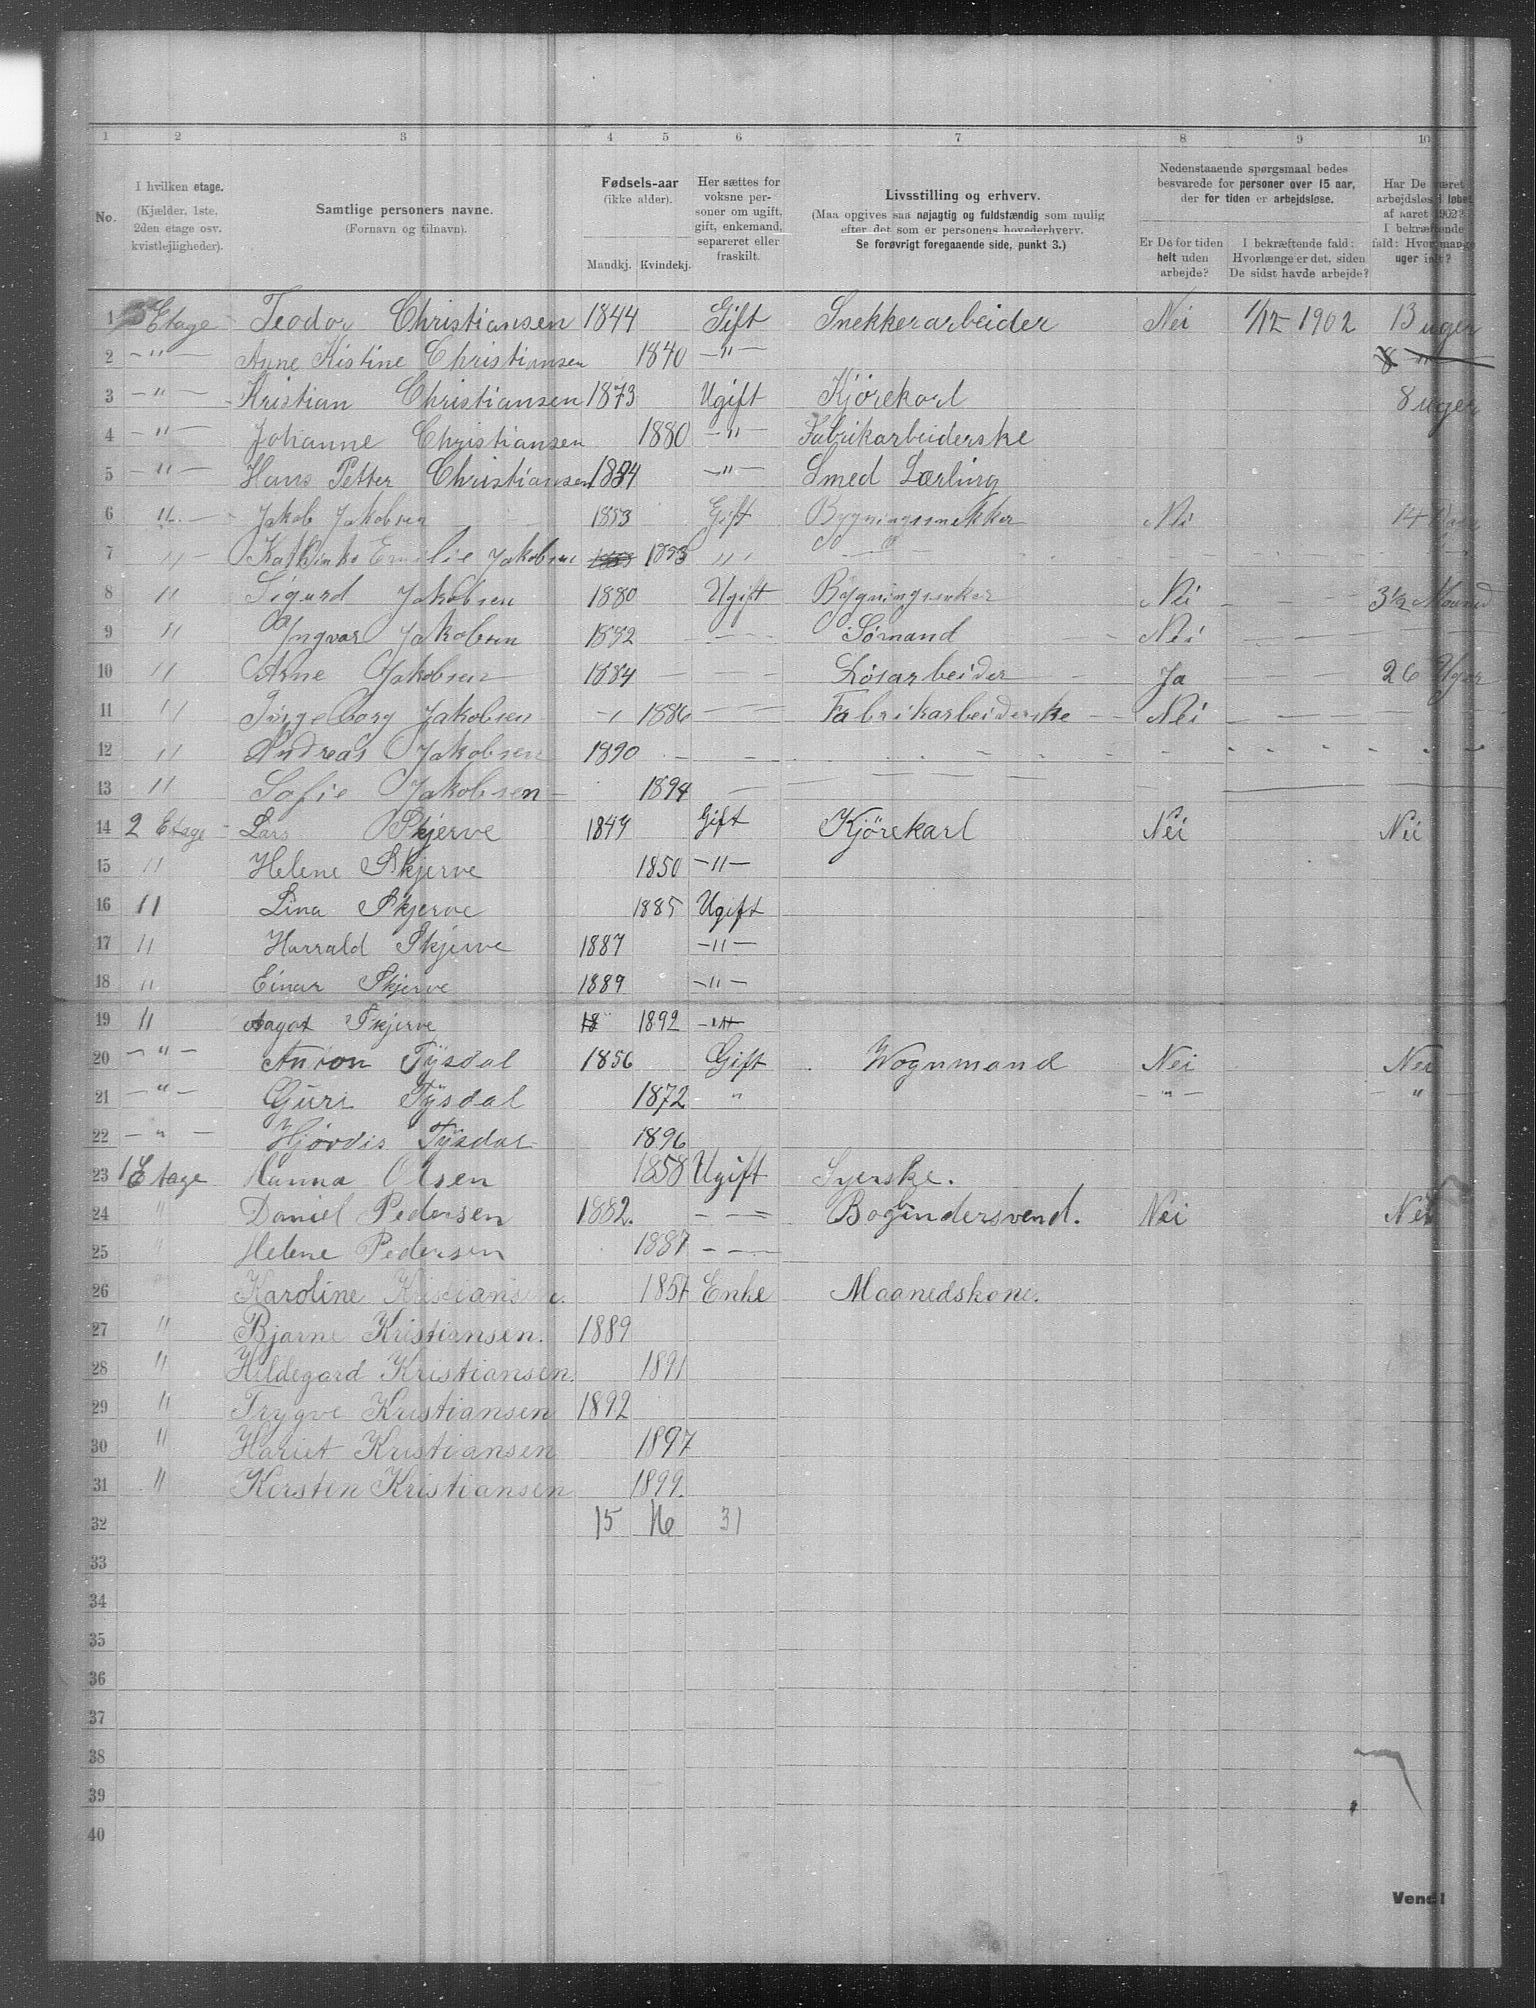 1 2 3 4 5 6 7 8 9 10
No. I hvilken etage. (Kjælder, 1ste, 2den etage osv. kvistlejligheder). Samtlige personers navne. (Fornavn og tilnavn). Fødsels-aar (ikke alder). Mandkj. Kvindekj. Her sættes for voksne personer om ugift, gift, enkemand, separeret eller fraskilt. Livsstilling og erhverv. (Maa opgives saa nøjagtig og fuldstændig som mulig efter det som er personens hovederhverv. Se forøvrigt foregaaende side, punkt 3.) Nedenstaaende spørgsmaal bedes besvarede for personer over 15 aar, der for tiden er arbejdsløse. Er De for tiden helt uden arbejde? I bekræftende fald: Hvorlænge er det, siden De sidst havde arbejde? Har De været arbejdsløs i løbet af aaret 1902? I bekræftende fald: Hvor mange uger ialt?
1 3 Etage Teodor Christiansen 1844 Gift Snekkerarbeider Nei 1/12 1902 13 uger
2 -"- Anne Kistine Christiansen 1840 -"- 8 -"-
3 -"- Kristian Christiansen 1873 Ugift Kjörekarl 8 uger
4 -"- Johanne Christiansen 1880 -"- Fabrikarbeiderske
5 -"- Hans Petter Christiansen 1884 -"- Smed Lærling
6 -"- Jakob Jakobsen 1853 Gift Bygningssnekker Nei 14
7 -"- Emilie Jakobsen 1853 "
8 " Sigurd Jakobsen 1880 Ugift Nei 3½ Maaned
9 " Yngvar Jakobsen 1882 - - - Sömand - Nei
10 " Arne Jakobsen 1884 - - - Lösarbeider - Ja 26 Uger
11 " Ingeborg Jakobsen - 1886 - - Fabrikarbeiderske - Nei - -
12 " Andreas Jakobsen 1890 - -
13 " Sofie Jakobsen - 1894 -
14 2 Etage - Lars Skjerve 1849 Gift Kjörekarl Nei Nei
15 " Helene Skjerve 1850 -"-
16 " Lina Skjerve 1885 Ugift
17 " Harrald Skjerve 1887 -"-
18 " Einar Skjerve 1889 -"-
19 " Aagot Skjerve 18 1892 -"-
20 -"- Anton Tÿsdal 1856 Gift Wognmand Nei Nei
21 -"- Guri Tÿsdal 1872 " -"- - "
22 -"- Hjördis Tÿsdal 1896
23 1 Etage Hanna Olsen 1858 Ugift Syerske.
24 " Daniel Pedersen 1882. - - Bogbindersvend. Nei Nei
25 " Helene Pedersen 1887 - -
26 " Karoline Kristiansen. 1857 Enke Maanedskone.
27 " Bjarne Kristiansen. 1889
28 " Hildegard Kristiansen. 1891
29 " Trygve Kristiansen 1892
30 " Hariet Kristiansen 1897
31 " Kersten Kristiansen 1899.
32 15 16 31
33
34
35
36
37
38
39
40
Vend!